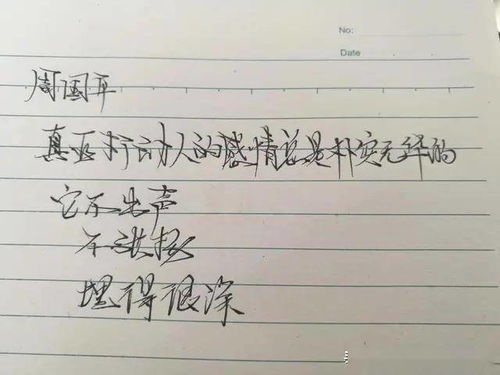 No:
Date
周国平
真正打动人的感情总是朴实无华的
它不出声
不张扬
埋得很深